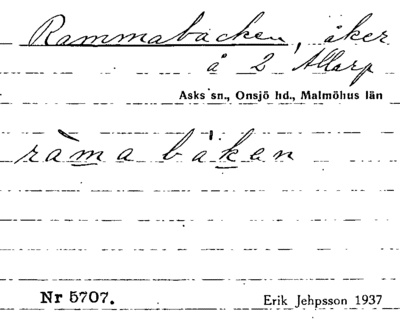 Rammabacken, åker
å 2 Allarp
Asks sn., Onsjö hd., Malmöhus län
ràma bákan
Nr 5707.
Erik Jehpsson 1937